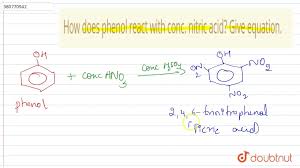 380770542
How does phenol react with conc. nitric acid? Give equation.
OH
OH
+ Conc HNO3
Conc H2SO4
NO2
NO2
NO2
phenol
2, 4, 6- trinitrophenol
( Picric acid)
doubtnut